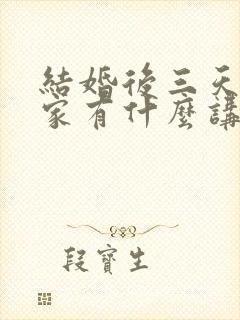 結婚後三天
家有什麼講
段寶生